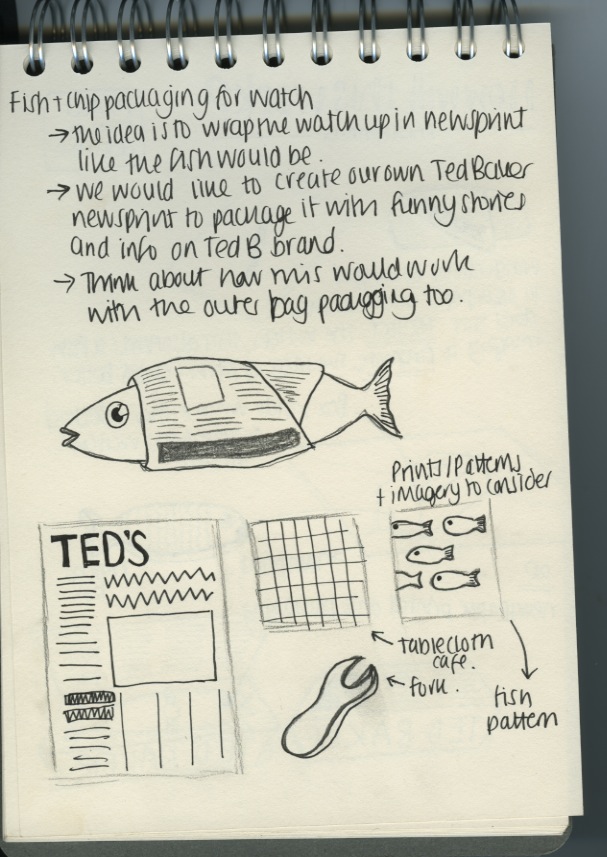 Fish + chip packaging for watch
→ the idea is to wrap the watch up in newsprint
like the fish would be.
→ we would like to create our own Ted Baker
newsprint to package it with funny stories
and info on Ted B brand.
→ Think about how this would work
with the outer bag packaging too.
Prints/Patterns
+ imagery to consider
TED'S
tablecloth
cafe.
fork.
fish
pattern